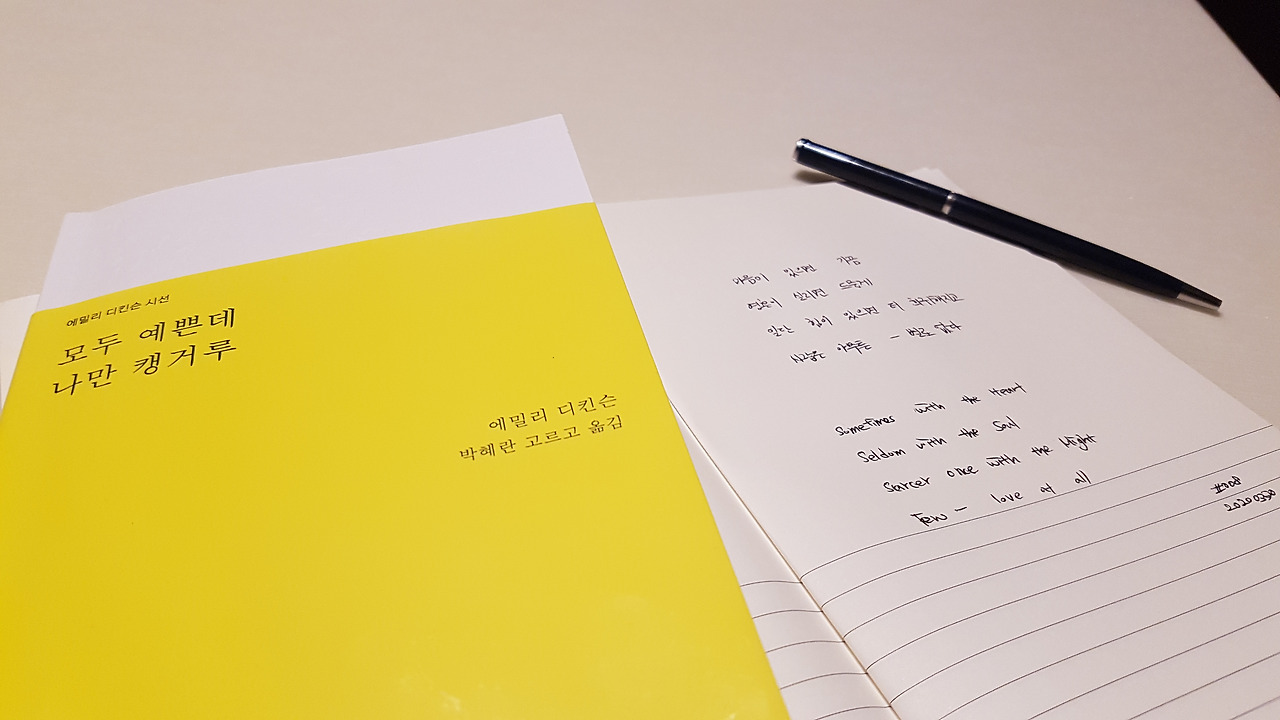 에밀리 디킨슨 시선
모두 예쁜데
나만 캥거루
에밀리 디킨슨
박혜란 고르고 옮김
마음이 있으면 가끔
영혼이 실리면 드물게
일단 힘이 있으면 더
사랑은 아무튼 – 별로 없다
Sometimes with the Heart
Seldom with the Soul
Sarcer once with the Might
Few – love at all
20200330